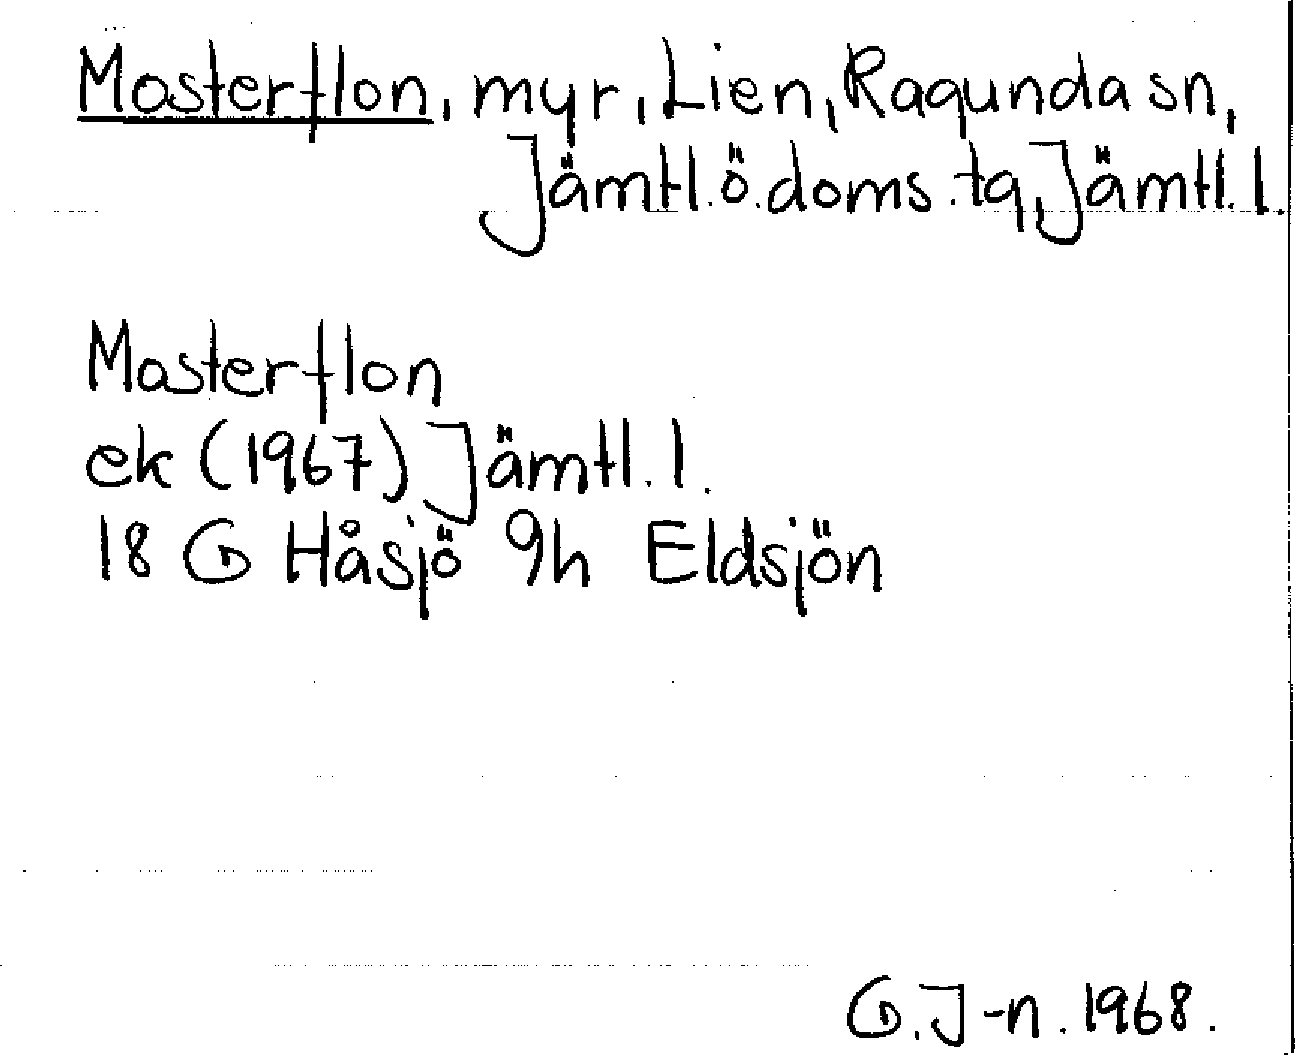 Mosterflon, myr, Lien, Ragunda sn,
Jämtl.ö.doms.tg, Jämtl.l.
Mosterflon
ek (1967) Jämtl.l.
18 G Håsjö 9h Eldsjön
G.J-n. 1968.